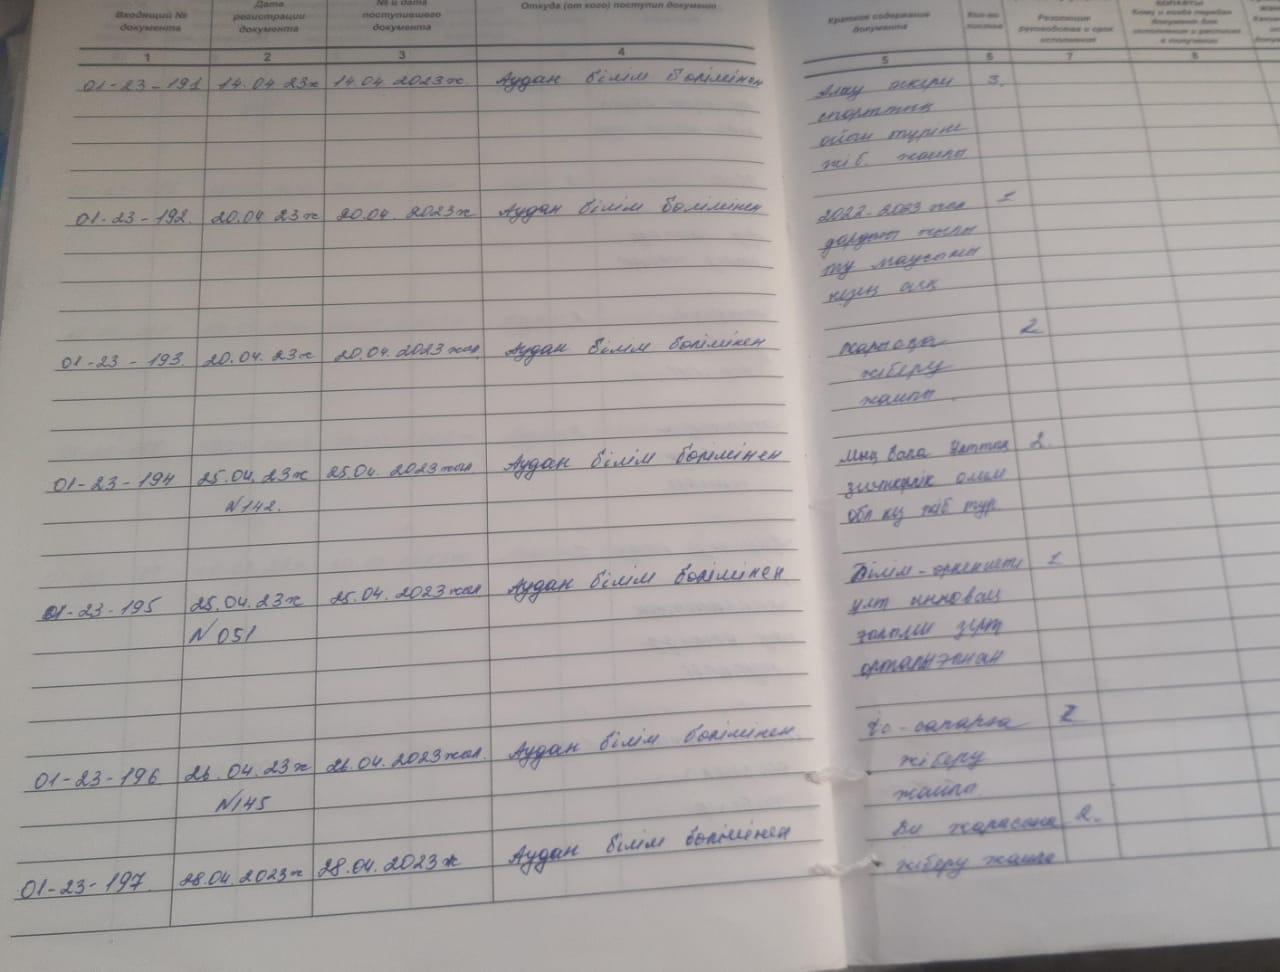 Входящий № документа
Дата регистрации документа
№ и дата поступившего документа
Откуда (от кого) поступил документ
Краткое содержание документа
Кол-во листов
Резолюция руководства и срок исполнения
Кому и когда передан документ для исполнения и расписка в получении
1 2 3 4 5 6 7 8
01-23-191 14.04 23ж 14.04.2023ж Аудан білім бөлімінен 3.
спорттық
ойын түріне
жіб. жайлы
01-23-192 20.04 23ж 20.04.2023ж Аудан білім бөлімінен 2022-2023 жыл 1
ту маусымы
01-23-193. 20.04.23ж 20.04.2023жыл Аудан білім бөлімінен 2
жіберу
жайлы.
01-23-194 25.04.23ж 25.04.2023жыл Аудан білім бөлімінен Мың бала Ұлттық 2.
N142.
зияткерлік олим
обл кез жіб тур.
01-23-195 25.04.23ж 25.04.2023жыл Аудан білім бөлімінен Білім- 1
N051
ұлт инновац
01-23-196 26.04.23ж 26.04.2023жыл. Аудан білім бөлімінен Іс-сапарға 2
N145
жіберу
жайлы
01-23-197. 28.04.2023ж 28.04.2023ж Аудан білім бөлімінен 2.
жіберу